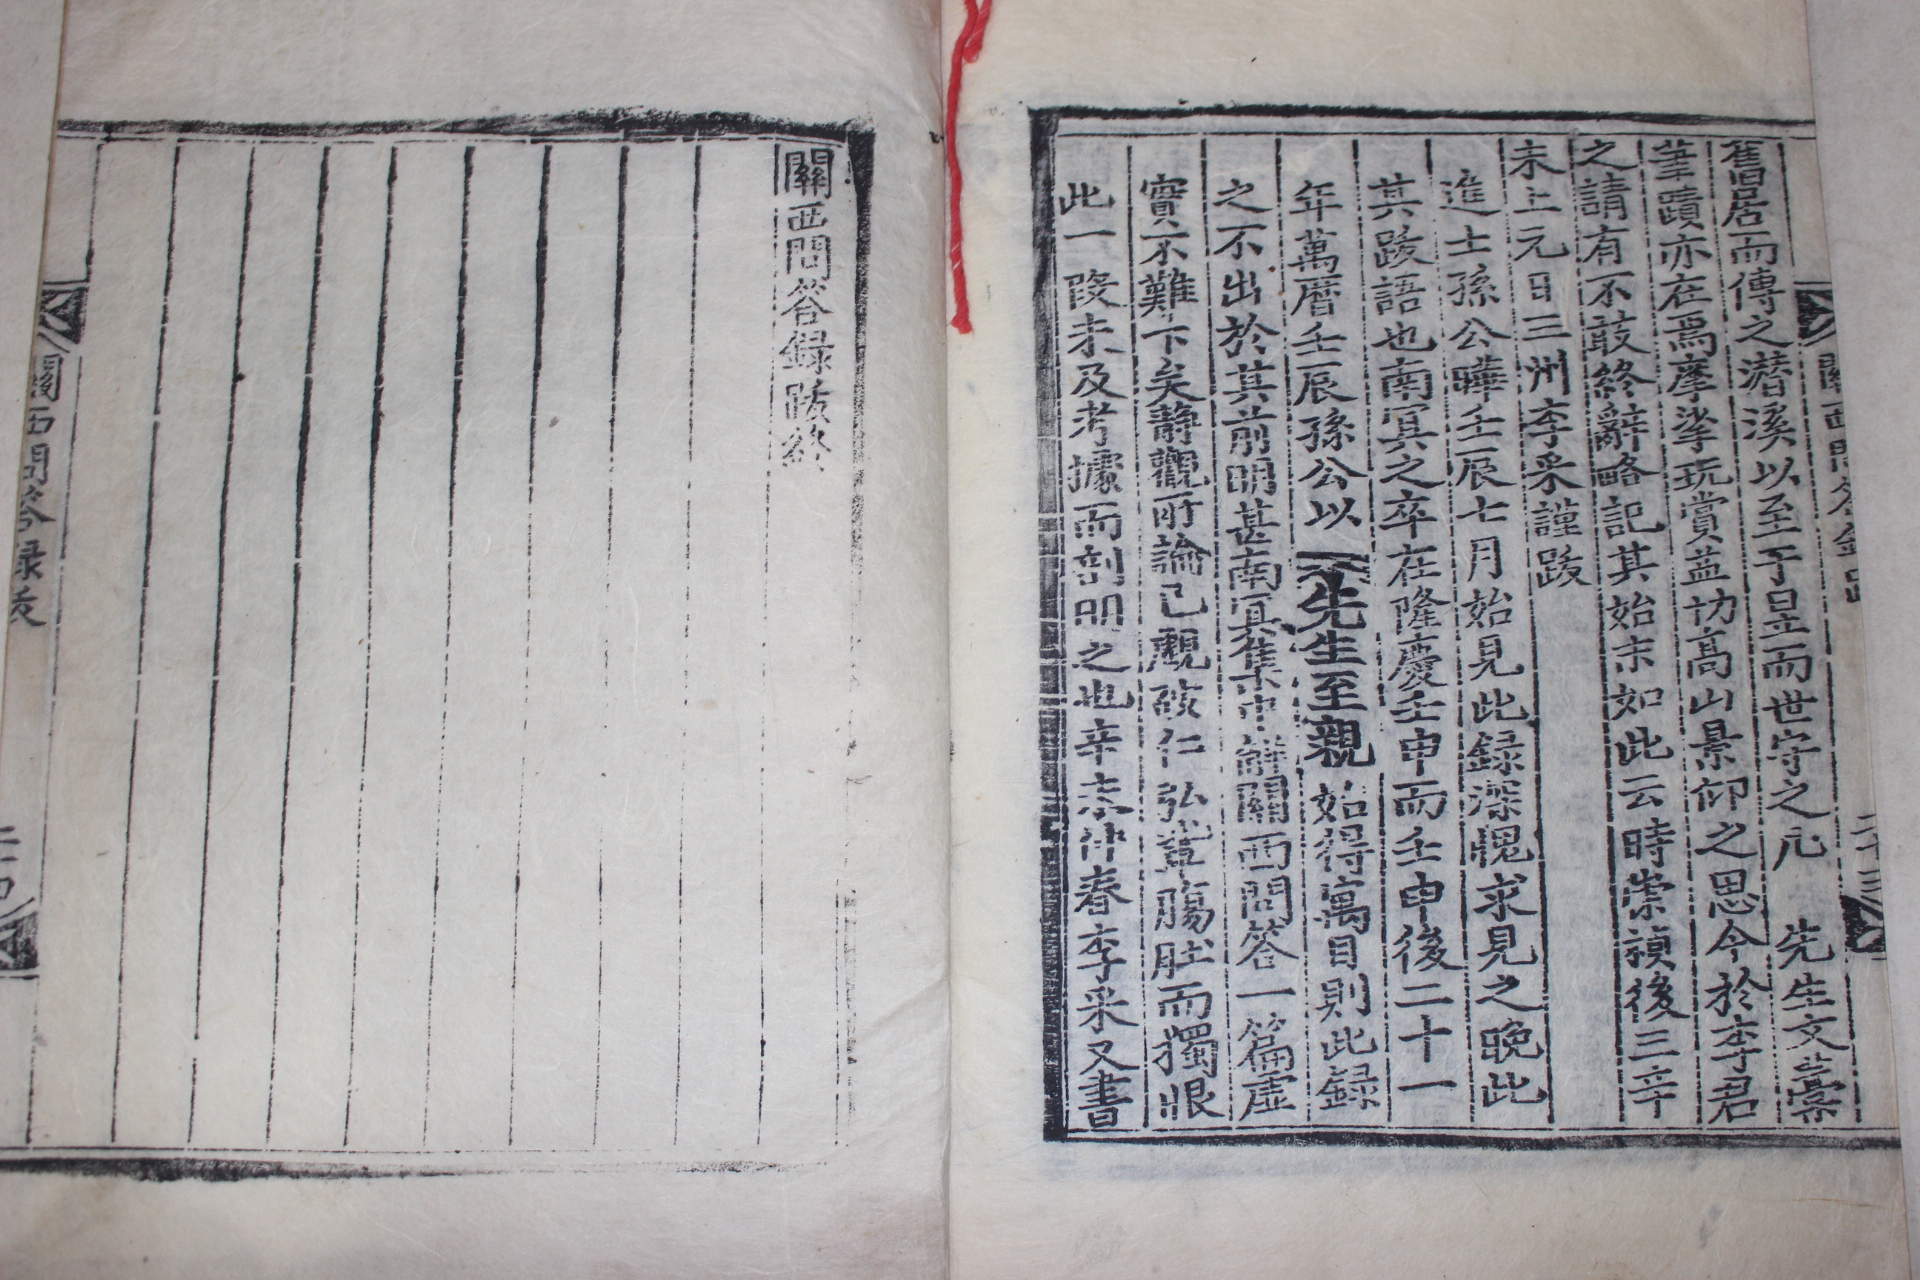 舊居而傳之潜溪以至于昰而世守之元 先生文藁
筆蹟亦在焉摩挲玩賞益切高山景仰之思今於李君
之請有不敢終辭略記其始末如此云時崇禎後三辛
未上元日三州李采謹跋
進士孫公曄壬辰七月始見此録深愧求見之晚此
其跋語也南冥之卒在隆慶壬申而壬申後二十一
年萬曆壬辰孫公以先生至親始得寓目則此録
之不出於其前明甚南冥集中辭關西問答一篇虛
實不難卞矣靜觀所論已覼破仁弘輩腸肚而獨恨
此一段未及考據而剖明之也辛未仲春李采又書
關西問答録跋 二十三
關西問答録跋終
關西問答録跋 二十四